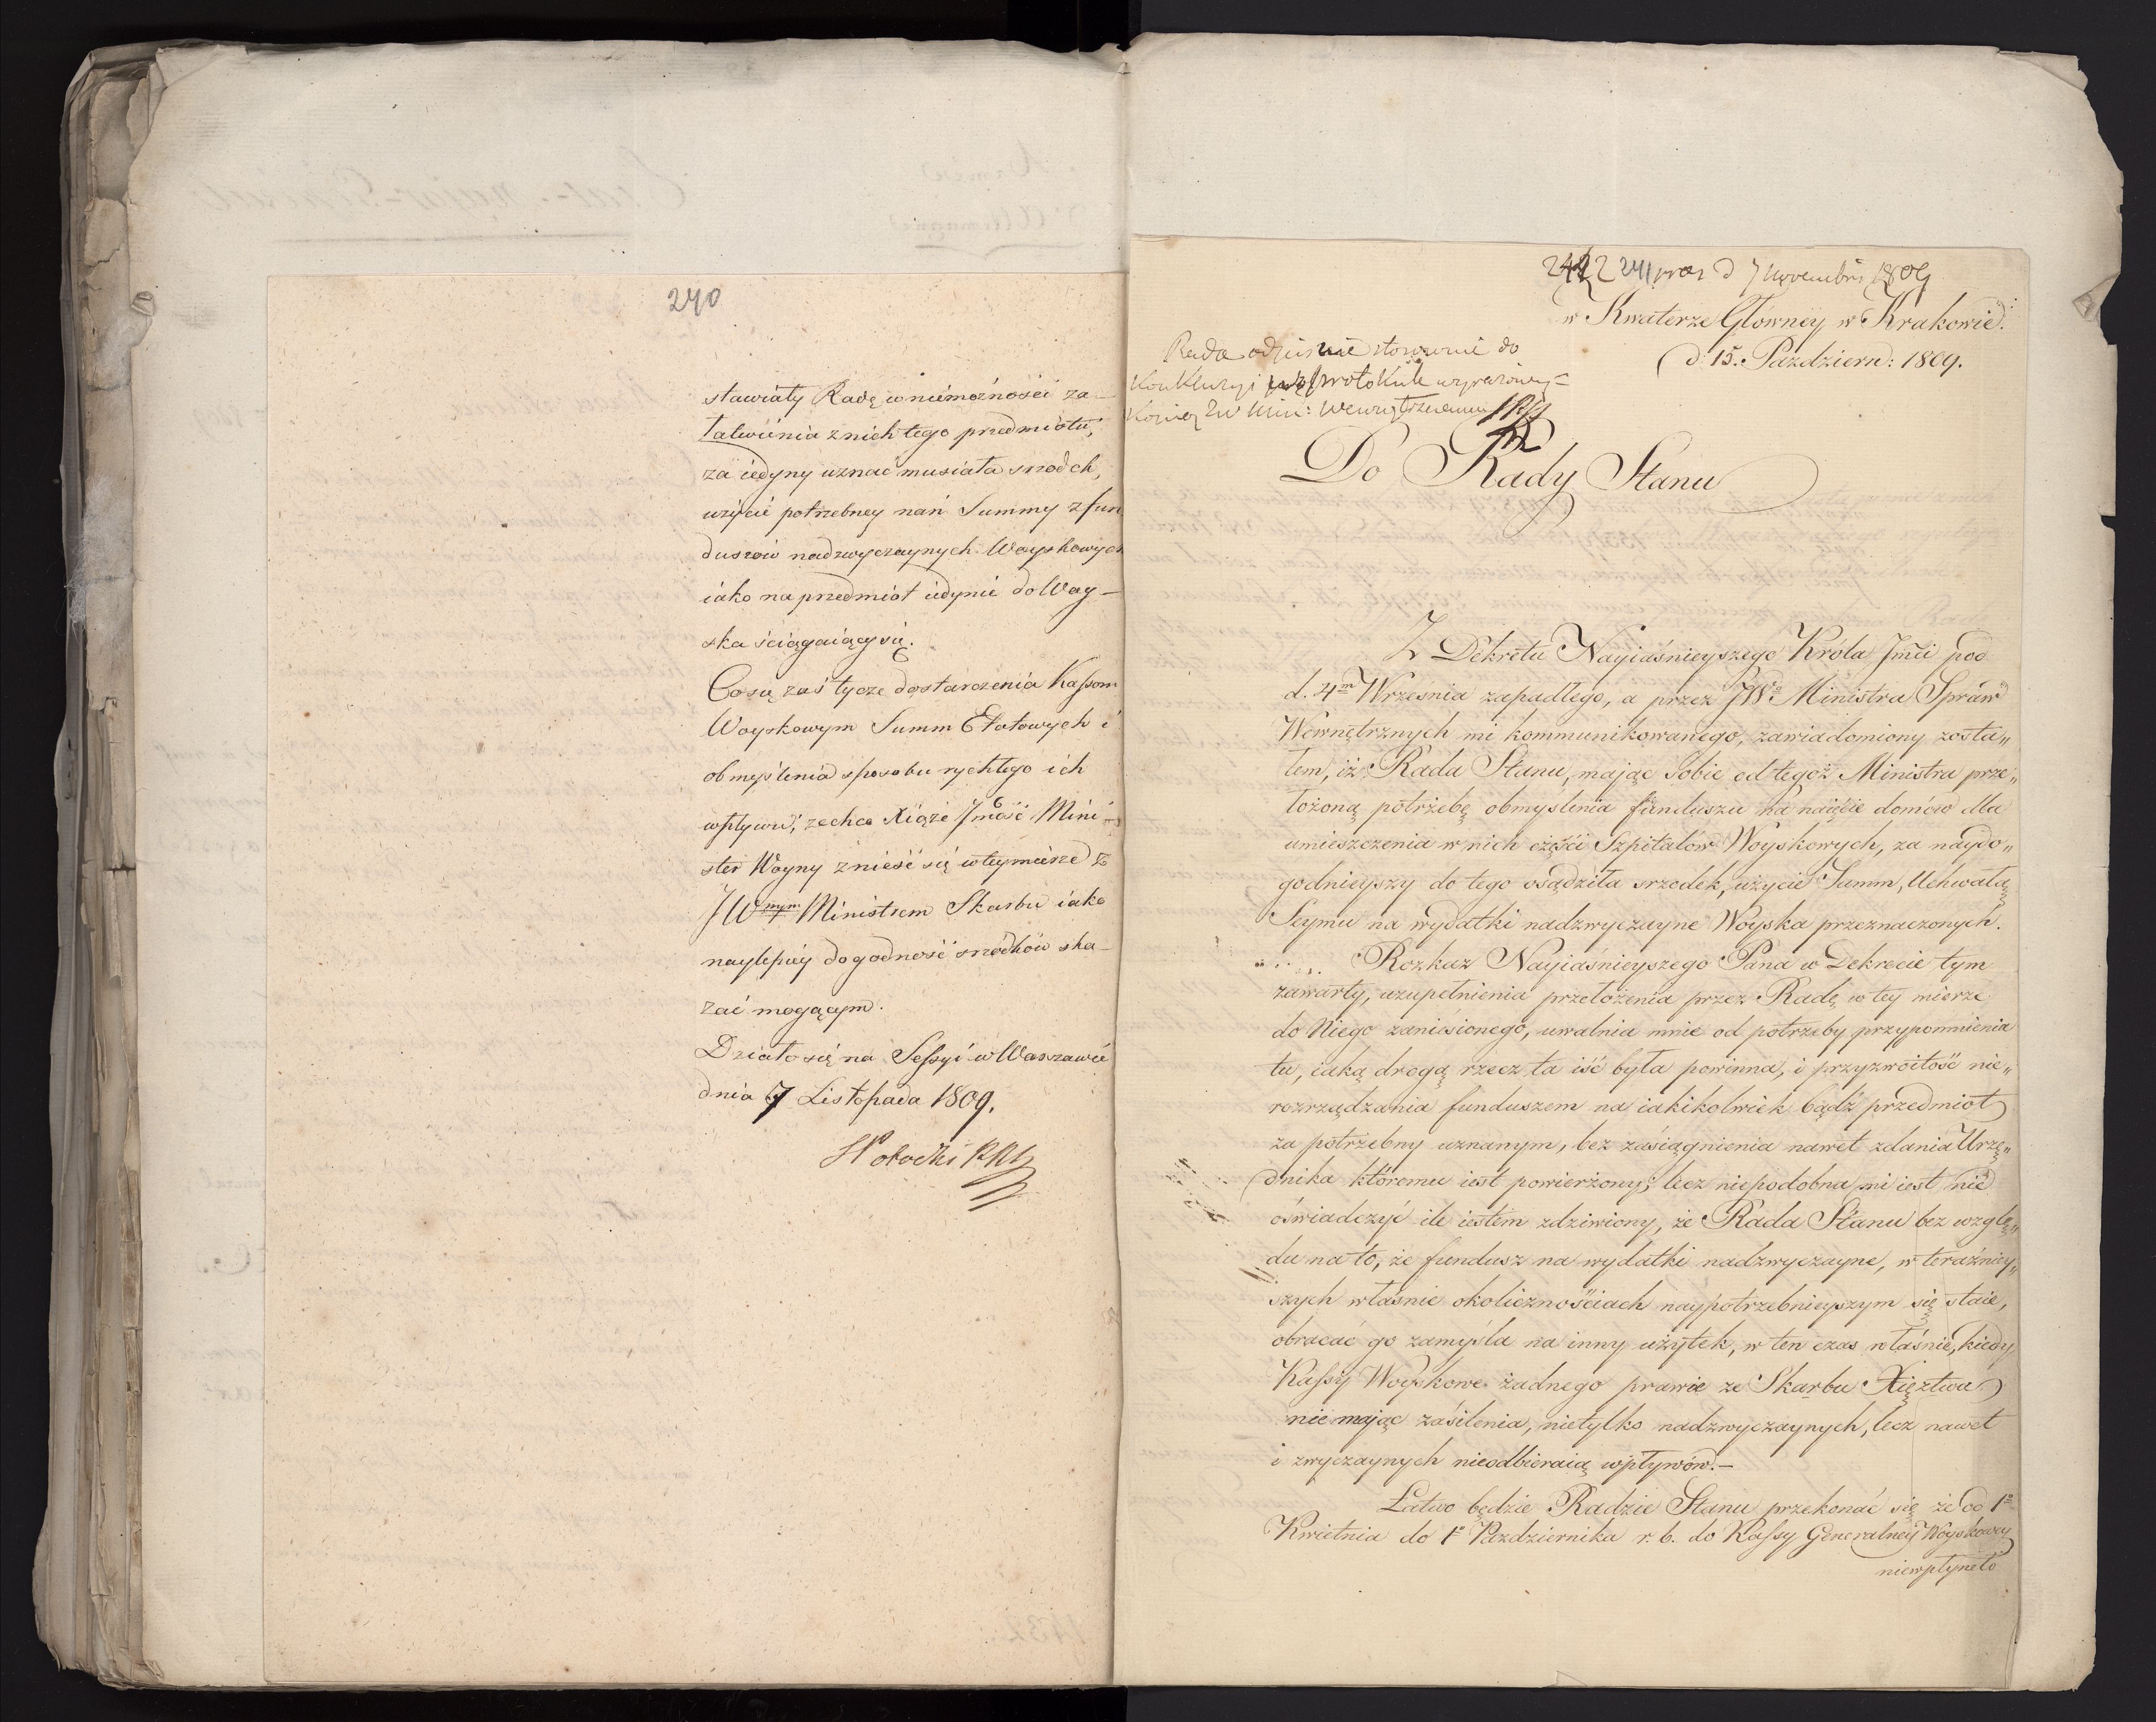 240
stawiały Radę w niemożności za-
łatwienia z nich tego przedmiotu,
za iedyny uznać musiała srzodek,
użycie potrzebney nań Summy z fun
duszów nadzwyczaynych Woyskowych
iako na przedmiot iedynie do Woy-
ska ściągaiący się.
Co się zaś tycze dostarczenia Kassom
Woyskowym Summ Etatowych i
obmyślenia sposobu rychłego ich
wpływu, zechce Xiąże Jmość Mini-
ster Woyny znieść się w tey mierze z
JWmym Ministrem Skarbu iako
naylepiey dogodność srzodków ska-
zać mogącym.
Działo się na Sessyi w Warszawie
dnia 7 Listopada 1809.
S Potocki PRM
242 241 praes d 7 novembris 1809
w Kwaterze Główney w Krakowie.
d: 15. Paździer: 1809.
Rada odpisanie stosownie do
Konkluzyi w protokule
Min: Wewnętrznemu
Do Rady Stanu
Z Dekretu Nayiaśnieyszego Króla Jmci pod
d. 4m Września zapadłego, a przez JWo Ministra Spraw
Wewnętrznych mi kommunikowanego, zawiadomiony zosta„
łem, iż Rada Stanu, mając sobie od tegoż Ministra prze„
łożoną potrzebę obmyslenia funduszu na naięcie domów dla
umieszczenia w nich części Szpitalów Woyskowych, za naydo„
godnieyszy do tego osądziła srzodek, użycie Summ, Uchwałą
Seymu na wydatki nadzwyczayne Woyska przeznaczonych.
Rozkaz Nayiaśnieyszego Pana w Dekrecie tym
zawarty, uzupełnienia przełożenia przez Radę w tey mierze
do Niego zaniesionego, uwalnia mnie od potrzeby przypomnienia
tu, iaką drogą rzecz ta iść była powinna, i przyzwoitość nie„
rozrządzania funduszem na iakikolwiek bądź przedmiot
za potrzebny uznanym, bez zasiągnienia nawet zdania Urzę„
dnika któremu iest powierzony; lecz niepodobna mi iest nie
oświadczyć ile iestem zdziwiony, że Rada Stanu bez wzglę„
du na to, że fundusz na wydatki nadzwyczayne, w teraźniey„
szych własnie okolicznościach naypotrzebnieyszym się staie,
obracać go zamyśla na inny użytek, w ten czas własnie, kiedy
Kassy Woyskowe żadnego prawie ze Skarbu Xięztwa
nie mając zasilenia, nietylko nadzwyczaynych, lecz nawet
i zwyczaynych nieodbieraią wpływów.—
Łatwo będzie Radzie Stanu przekonać się że od 1o
Kwietnia do 1o Pazdziernika r. b. do Kassy Generalney Woyskowey
niewpłyneło